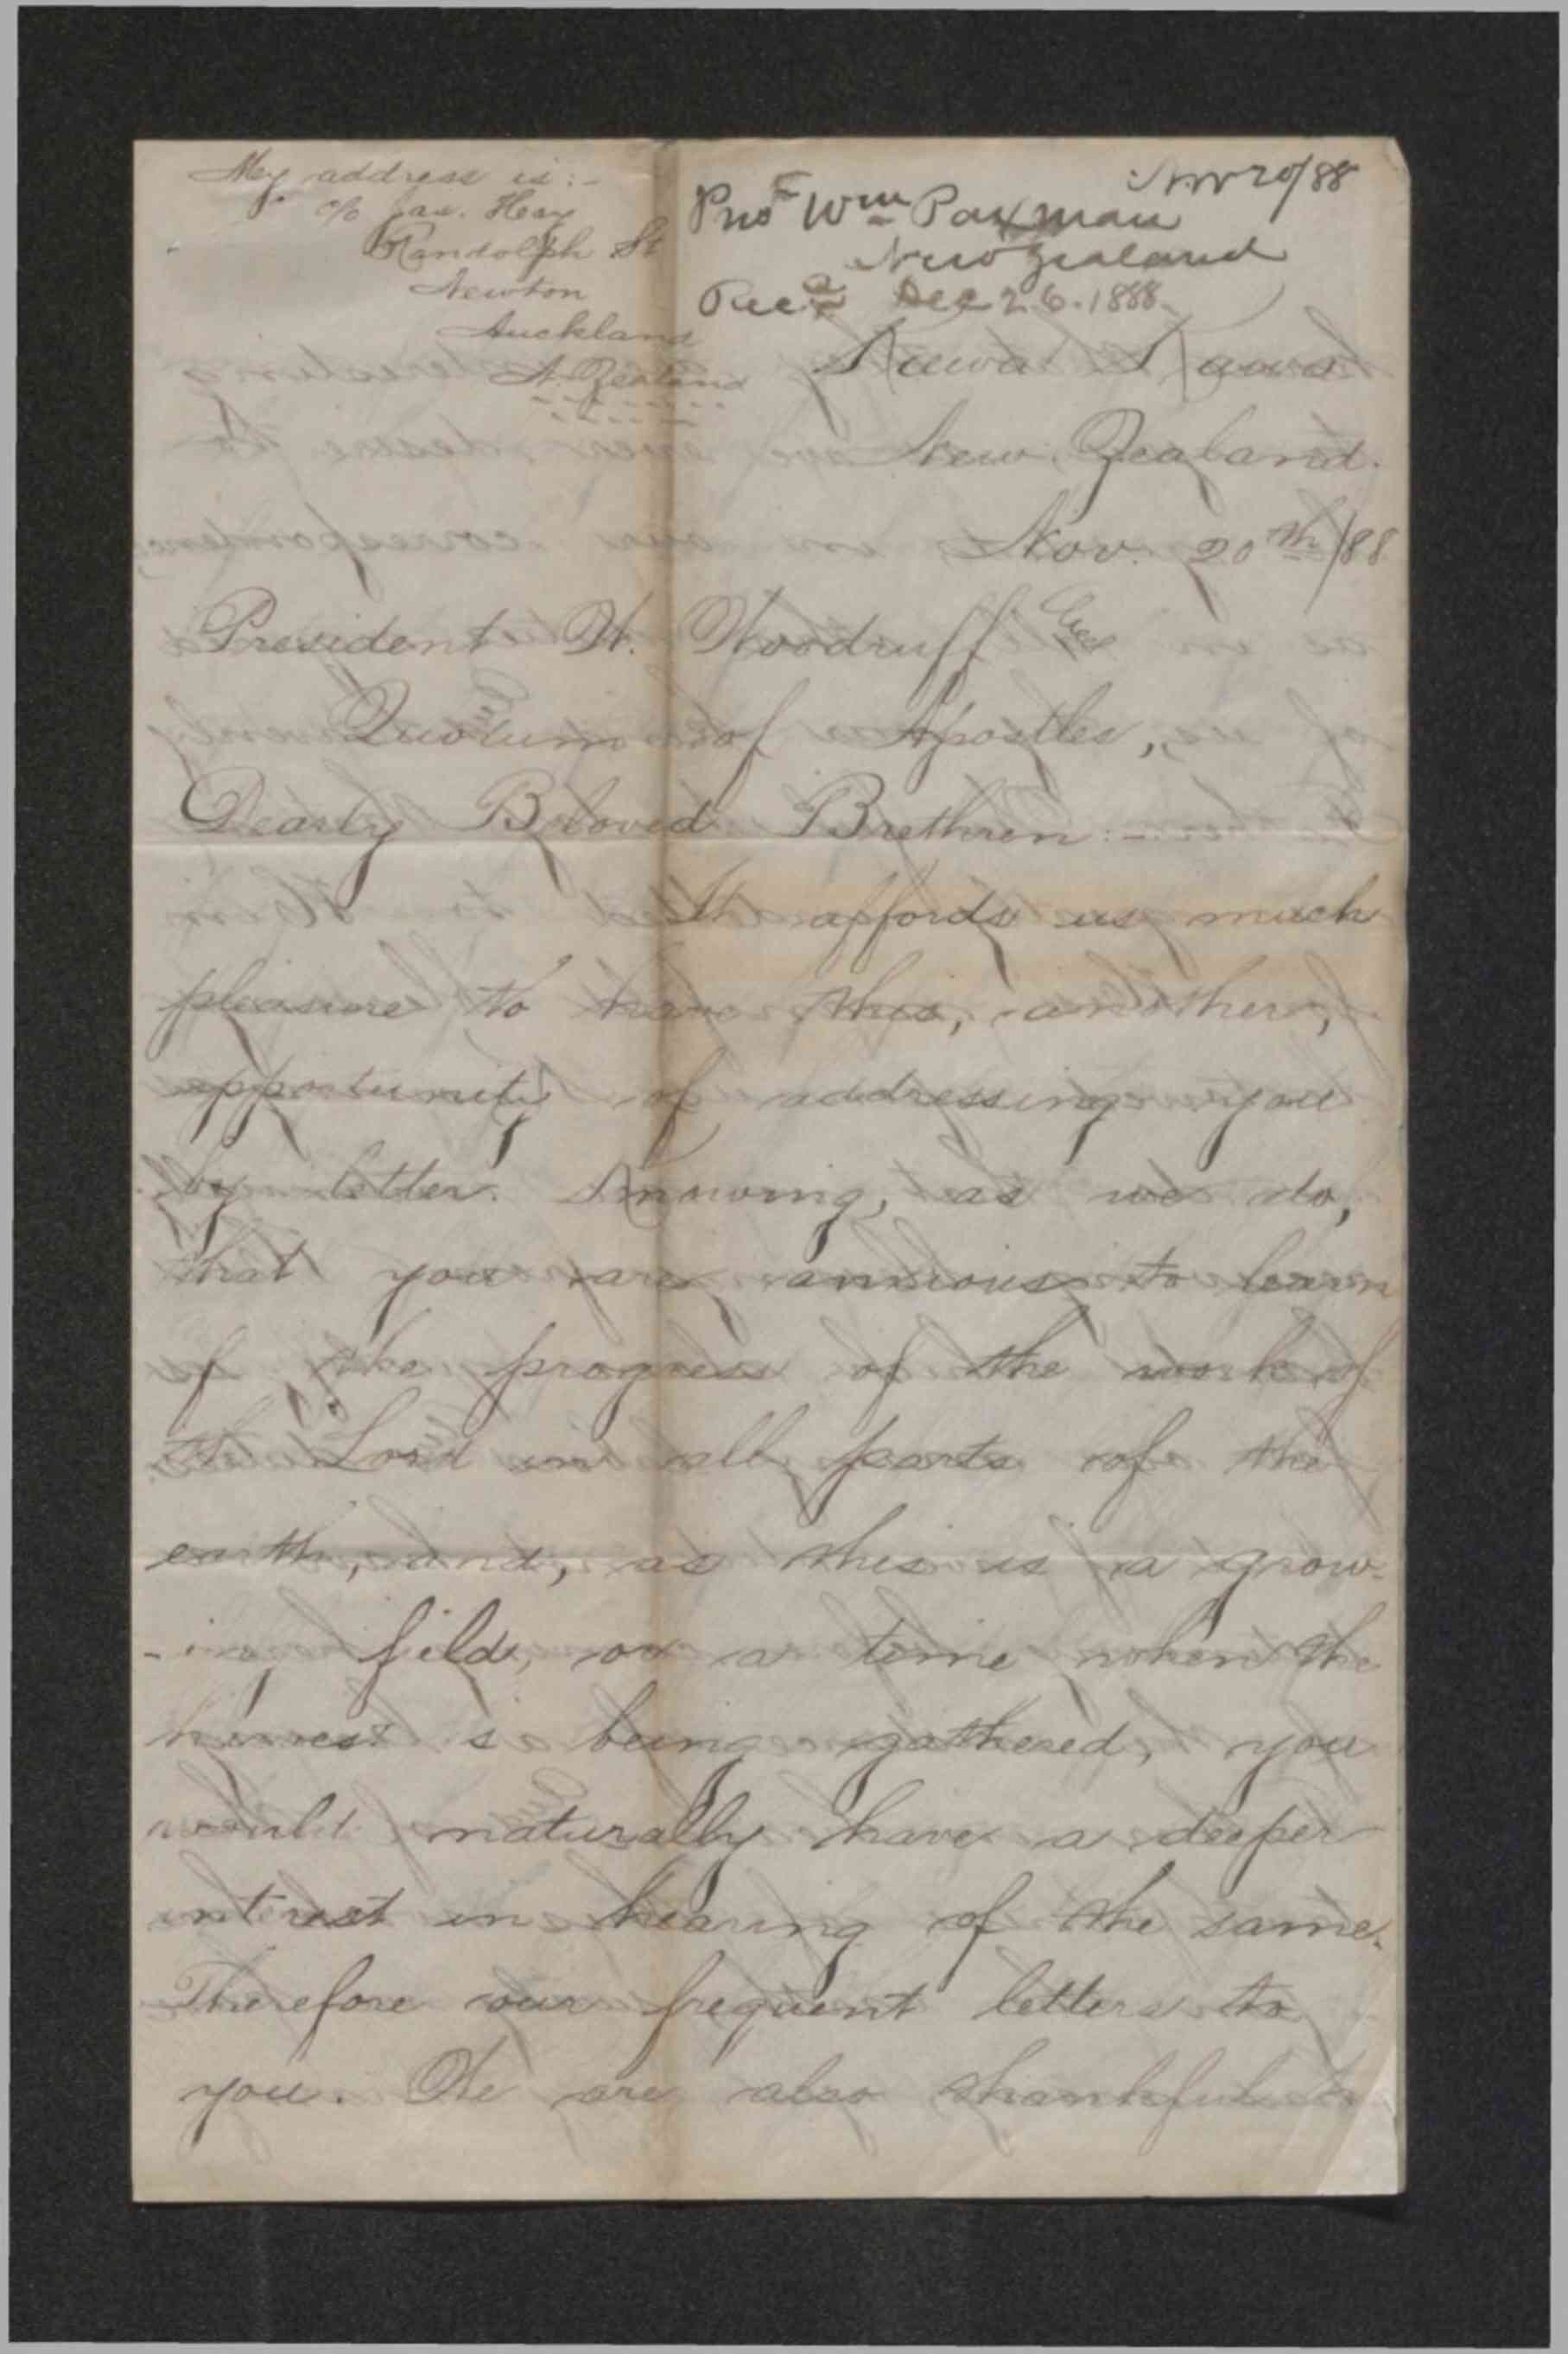 My address is :-
c/o Jas. Hay
Randolph St
Newton
Auckland
N. Zealand
Nov 20/88
Prest Wm Paxman
New Zealand
Recd Dec 26. 1888.
Kawa Kawa
New Zealand.
Nov. 20th/88
President W. Woodruff &
Quorum of Apostles,
Dearly Beloved Brethren :-
It affords us much
pleasure to have this, another,
opportunity of addressing you
by letter. Knowing, as we do,
that you are anxious to learn
of the progress of the work of
the Lord in all parts of the
earth, and, as this is a grow-
-ing field, or a time when the
harvest is being gathered, you
would naturally have a deeper
interest in hearing of the same.
Therefore our frequent letters to
you. We are also thankful to